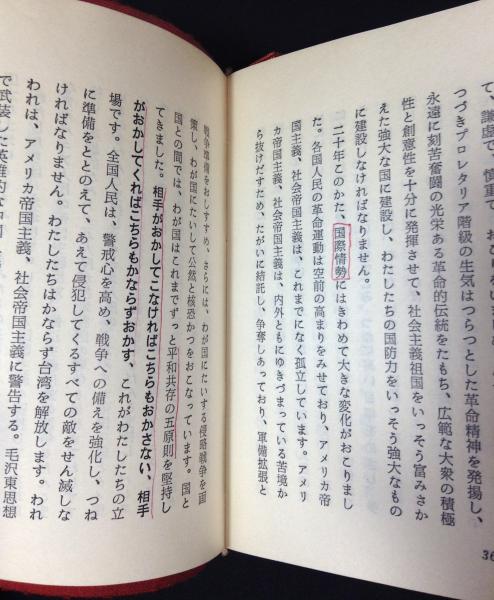 て、謙虚で、慎重で、おごりを
つづきプロレタリア階級の生気はつらつとした革命精神を発揚し、
永遠に刻苦奮闘の光栄ある革命的伝統をたもち、広範な大衆の積極
性と創意性を十分に発揮させて、社会主義祖国をいっそう富みさか
えた強大な国に建設し、わたしたちの国防力をいっそう強大なもの
に建設しなければなりません。
二十年このかた、国際情勢にはきわめて大きな変化がおこりまし
た。各国人民の革命運動は空前の高まりをみせており、アメリカ帝
国主義、社会帝国主義は、これまでになく孤立しています。アメリ
カ帝国主義、社会帝国主義は、内外ともにゆきづまっている苦境か
ら抜けだすため、たがいに結託し、争奪しあっており、軍備拡張と
36
戦争準備をおしすすめ、さらには、わが国にたいする侵略戦争を画
策し、わが国にたいして公然と核恐かつをおこなっています。国と
国との間では、わが国はこれまでずっと平和共存の五原則を堅持し
てきました。相手がおかしてこなければこちらもおかさない、相手
がおかしてくればこちらもかならずおかす、これがわたしたちの立
場です。全国人民は、警戒心を高め、戦争への備えを強化し、つね
に準備をととのえて、あえて侵犯してくるすべての敵をせん滅しな
ければなりません。わたしたちはかならず台湾を解放します。われ
われは、アメリカ帝国主義、社会帝国主義に警告する。毛沢東思想
で武装した英雄的な中国